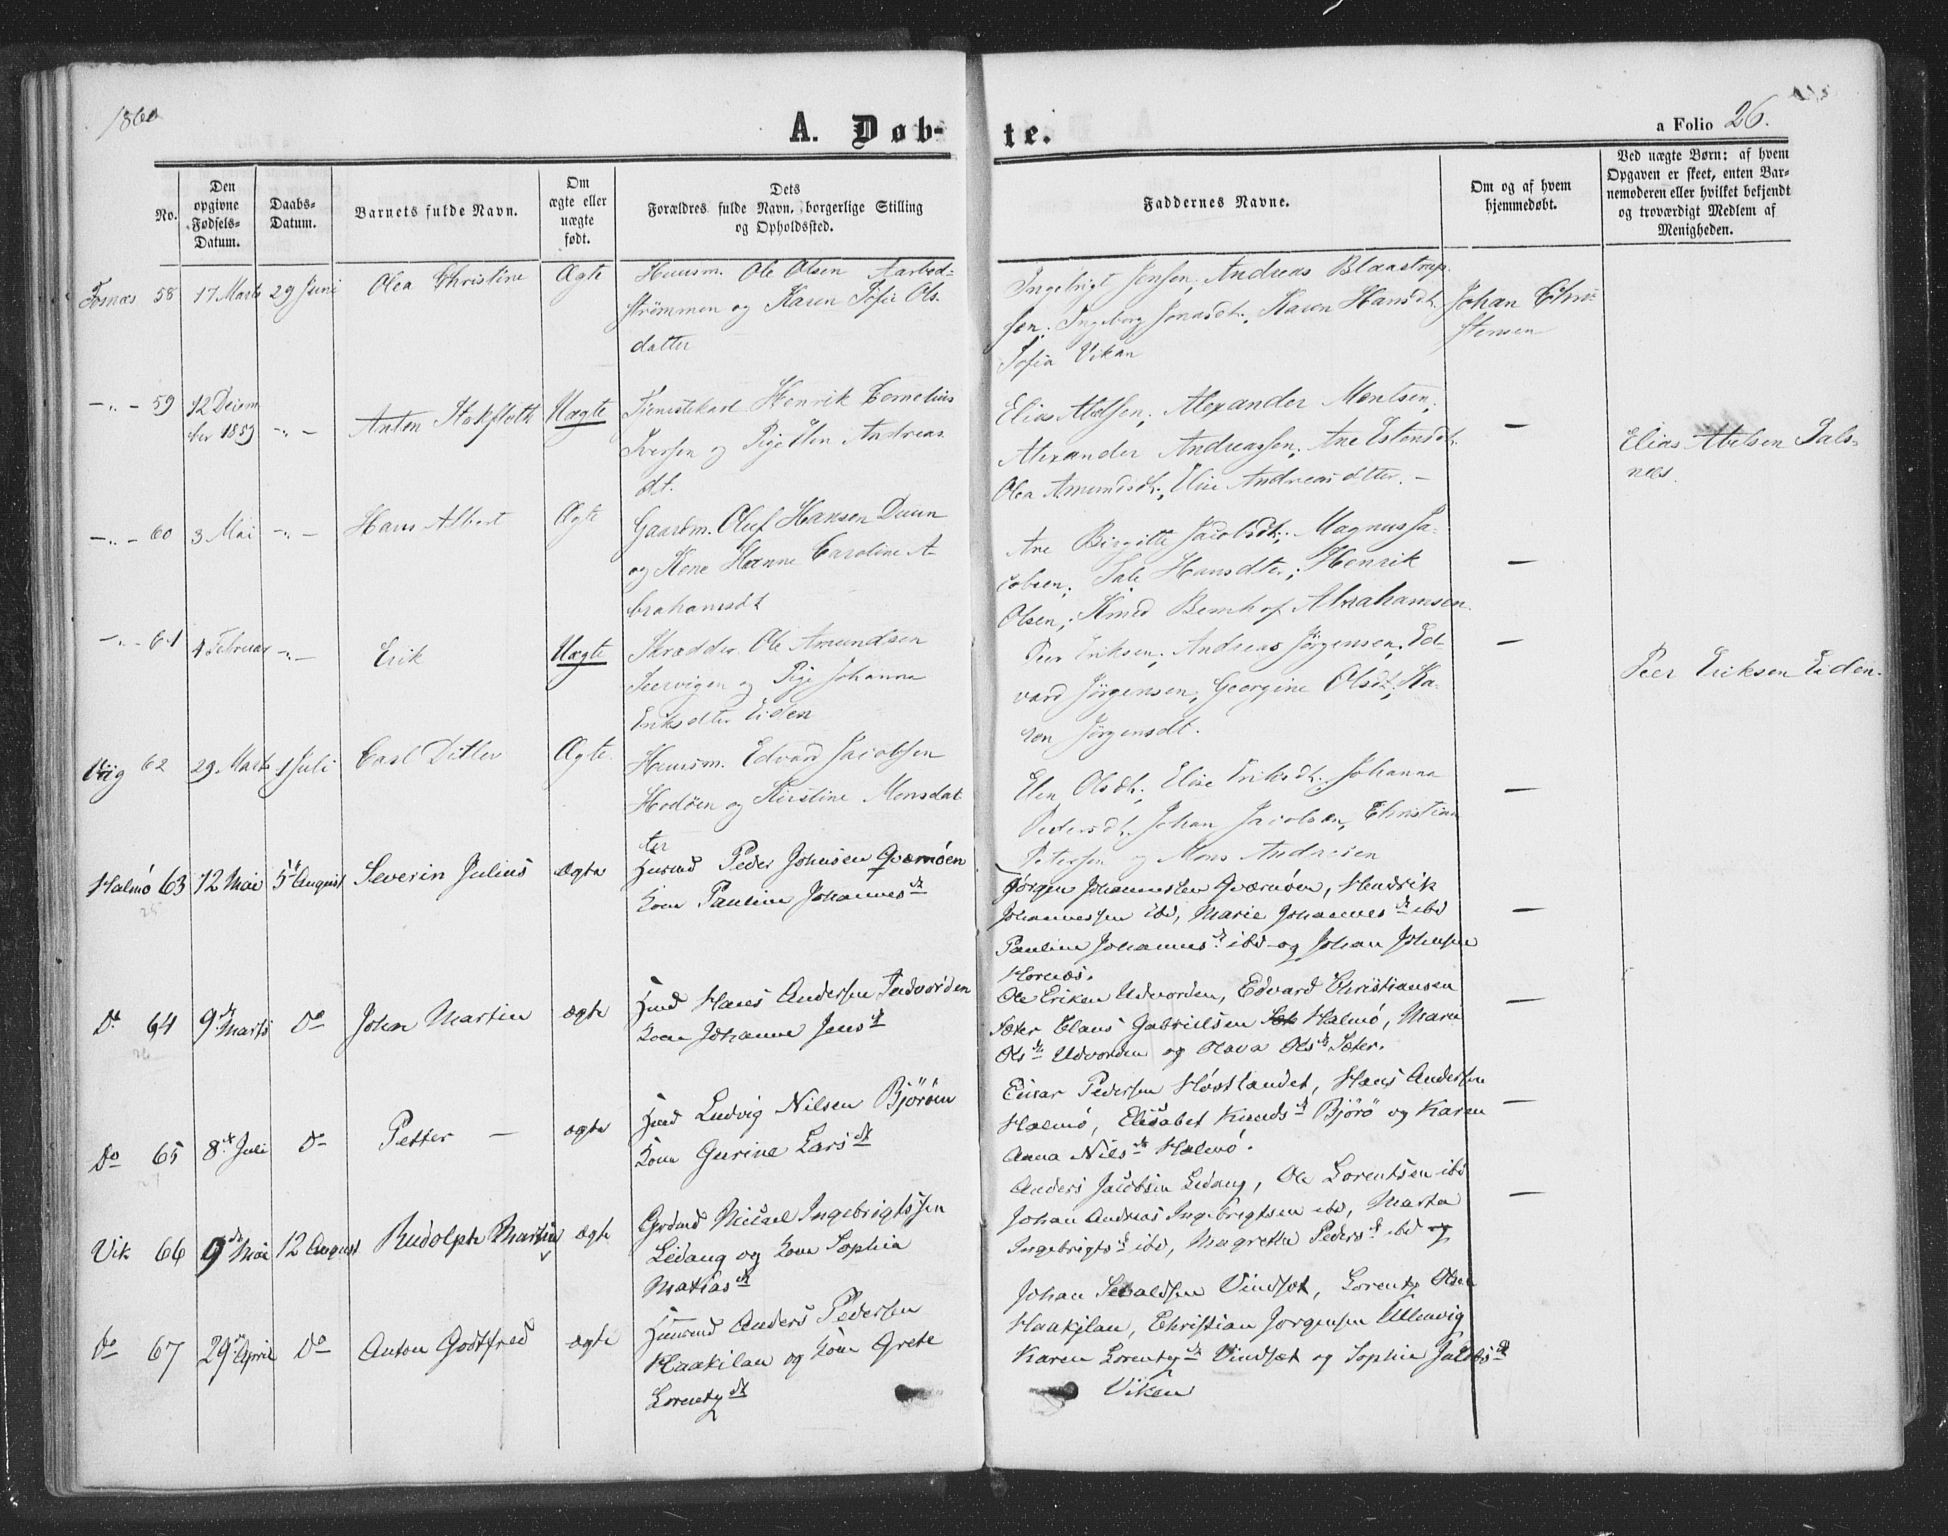 1860
A. Døb-
te.
a Folio 26.
No.
Den
opgivne
Fødsels-
Datum.
Daabs-
Datum.
Barnets fulde Navn.
Om
ægte eller
uægte
født.
Dets
Forældres fulde Navn, borgerlige Stilling
og Opholdssted.
Faddernes Navne.
Om og af hvem
hjemmedøbt.
Ved uægte Børn: af hvem
Opgaven er skeet, enten Bar-
nemoderen eller hvilket bekjendt
og troværdigt Medlem af
Menigheden.
Fosnæs 58 17 Marts 29 Juni Olea Christine Ægte
Huusm. Ole Olsen Aarbod-
strømmen og Karen Sofie Ols
datter
Ingebrigt Jensen, Andreas
sen, Ingeborg Jonasdt., Karen Hansdt.
Sofia Vikan
Johan Chri-
stensen
-"- 59 12 Decem
ber 1859 -"- Anton Uægte
Tjenestekarl Henrik Cornelius
Iversen og Pige Elen Andreas
dt.
Elias Abelsen, Alexander Montsen,
Alexander Andreassen, Ane Estensdt.
Olea Amundsdt., Elise Andreasdtter. -
-
Elias Abelsen Sals-
næs.
-"- 60 3 Mai -"- Hans Albert Ægte
Gaardm. Oluf Hansen Duun
og Kone Hanne Caroline A-
brahamsdt
Ane Birgitte Jacobsdt., Magnus Ja-
cobsen, Hansdter, Henrik
Olsen, Abrahamsen
-
-"- 61 4 Februar -"- Erik Uægte
Skrædder Ole Amundsen
Seervigen og Pige Johanna
Eriksdter Eiden
Peer Eriksen, Andreas Jörgensen, Ed-
vard Jörgensen, Georgine Olsdt., Ka-
ren Jörgensdt.
-
Peer Eriksen Eiden.
Viig 62 29 Marts 1 Juli Carl Ditlev Ægte
Huusm. Edvard Jacobsen
Hodöen og Kirstine Monsdat
ter
Elen Olsdt., Elise Eriksdt., Johanna
Pedersdt. Johan Jacobsen, Christian
Petersen og Mons Andresen
-
Halmö 63 12 Mai 5te August Severin Julius ægte
Huusmd Peder Johnsen Qværnöen
Kone Pauline Johannesdt
Jörgen Johannessen Qværnöen, Hendrik
Johannessen ibd, Marie Johannesdt ibd
Pauline Johannesdt ibd og Johan Johnsen
Hornæs.
-
Do 64 9de Marts Do Johan Martin ægte
Hmd Hans Andersen Indvorden
Kone Johanna Jensdt
Ole Eriksen Udvorden, Edvard Christiansen
Sæter Claus Gabrielsen Halmö, Maria
Olsdt Udvorden og Olava Olsdt Sæter.
-
Do 65 8de Juli Do Petter - ægte
Hmd Ludvig Nilsen Björöen
Kone Gurine Larsdt
Einar Pedersen Höstlandet, Hans Andersen
Halmö, Elisabet Knudsdt Björö og Karen
Anna Nilsdt Halmö.
-
Vik 66 9de Mai 12 August Rudolph Martin ægte
Grdmd Micael Ingebrigtsen
Lidang og Kone Sophia
Matiasdt
Anders Jacobsen Lidang, Ole Lorentsen ibd
Johan Andreas Ingebrigtsen ibd, Marta
Ingebrigtsdt ibd, Magretha Pedersdt ibd
-
Do 67 29de April Do Anton Godtfred ægte
Huusmd Anders Pedersen
Haakilan og Kone Grete
Lorentzdt
Johan Sevaldsen Vindsæt, Lorentz Olsen
Haakilan, Christian Jörgensen Ullenvig
Karen Lorentzdt Vindsæt og Sophia Jacobsdt
Viken